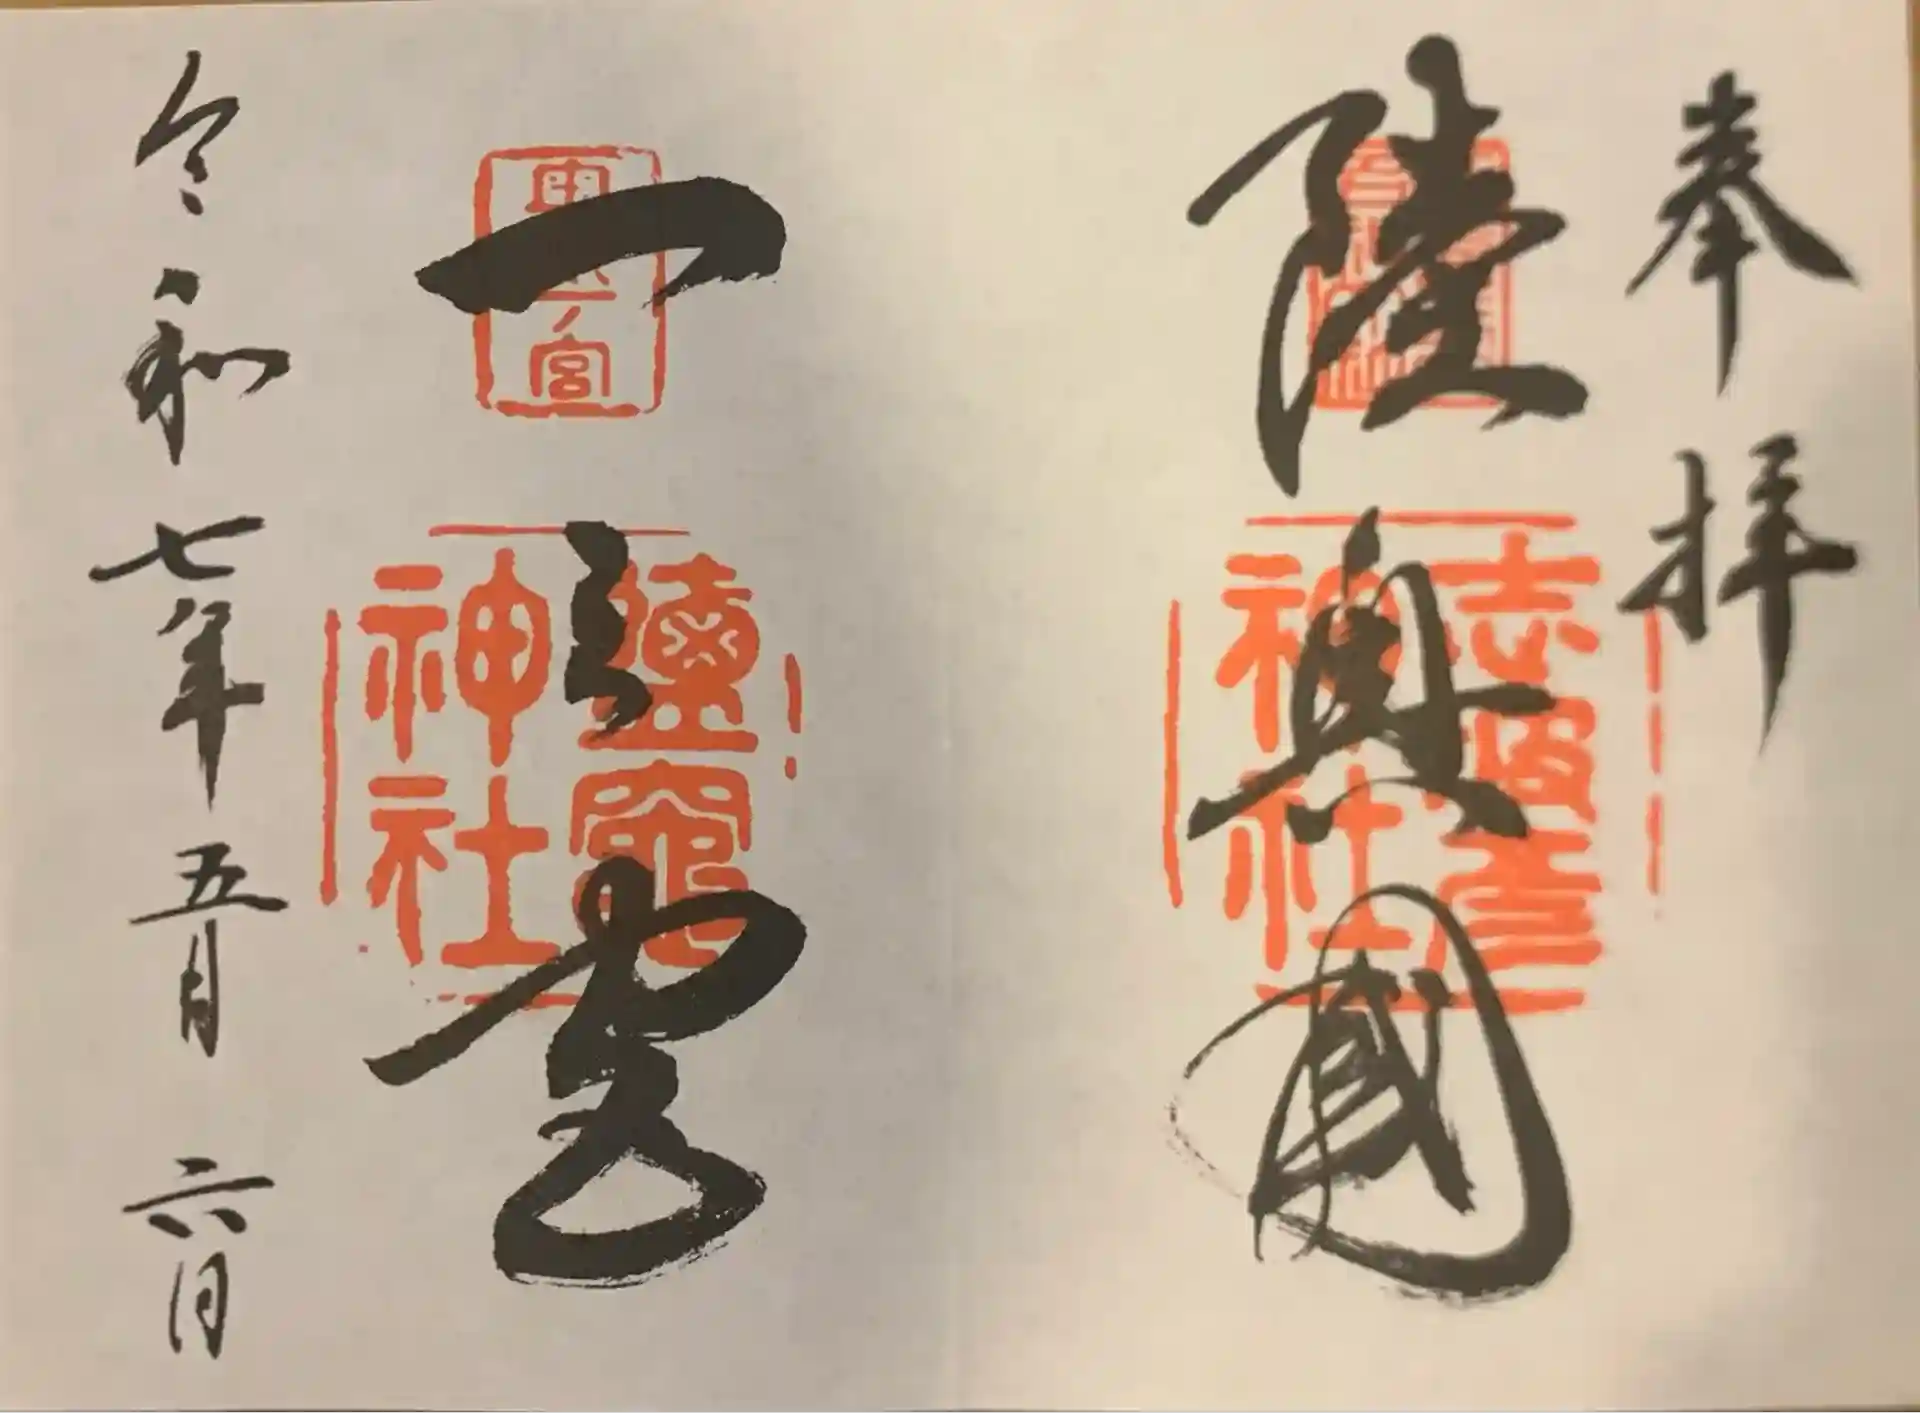 奉拝
陸奥國
志波彦
神社
一之宮
奥
ノ宮
鹽竈
神社
令和七年五月六日